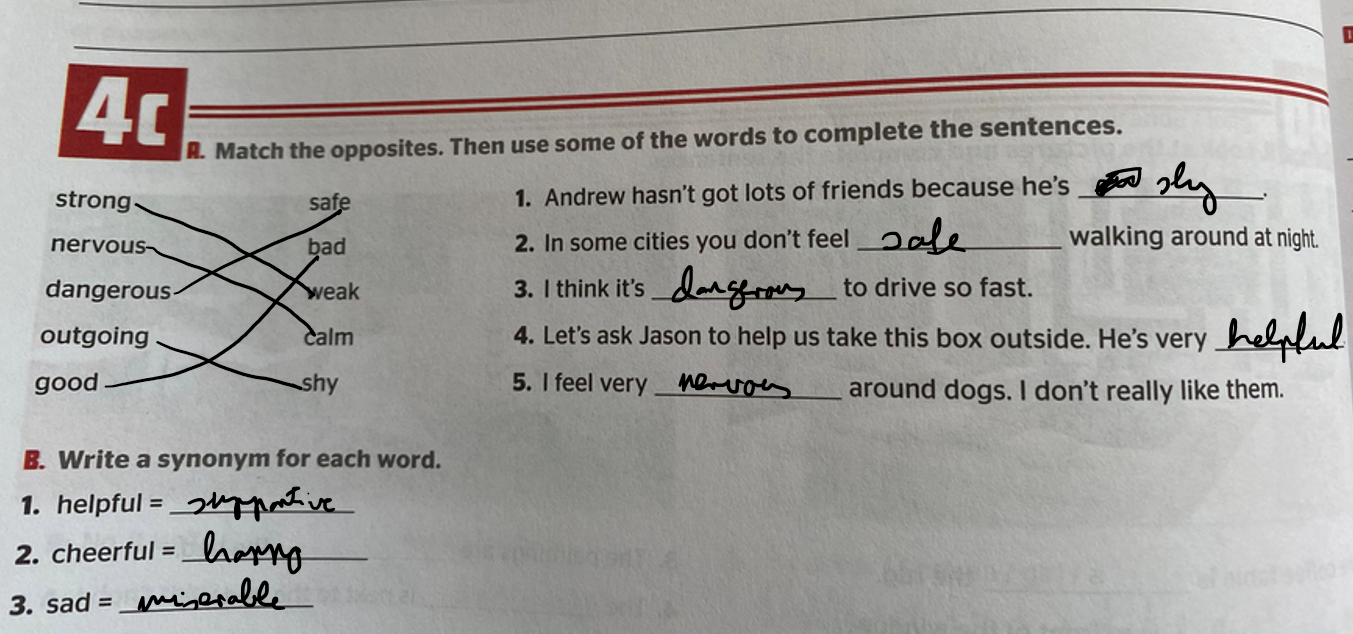 4c
A. Match the opposites. Then use some of the words to complete the sentences.
strong safe
nervous bad
dangerous weak
outgoing calm
good shy
1. Andrew hasn't got lots of friends because he's shy.
2. In some cities you don't feel safe walking around at night.
3. I think it's dangerous to drive so fast.
4. Let's ask Jason to help us take this box outside. He's very helpful
5. I feel very nervous around dogs. I don't really like them.
B. Write a synonym for each word.
1. helpful = supportive
2. cheerful = happy
3. sad = miserable